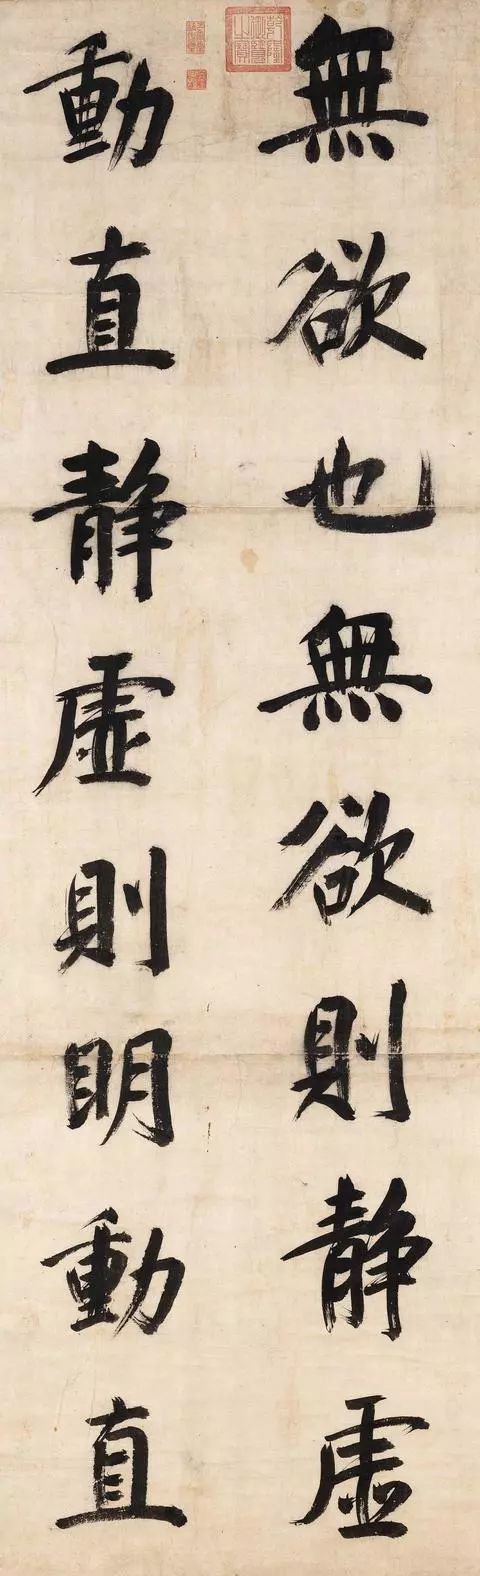 無欲也無欲則静虛
動直静虛則明動直